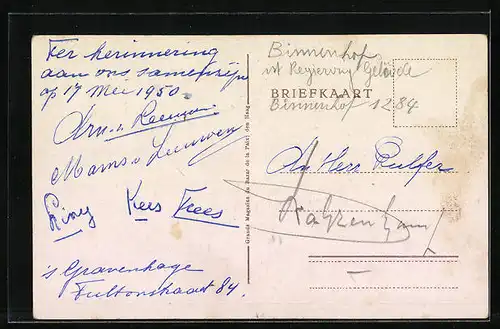 Ter herinnering
aan ons samenzijn
op 17 Mei 1950.
Arn. v. Leeuwen
Mams v. Leeuwen
Riny Kees Trees
's Gravenhage
Fultonstraat 84.
Grands Magasins du Bazar de la Paix, den Haag
Binnenhof
ist Regierung Gebäude
BRIEFKAART
Binnenhof 1284
An Herr